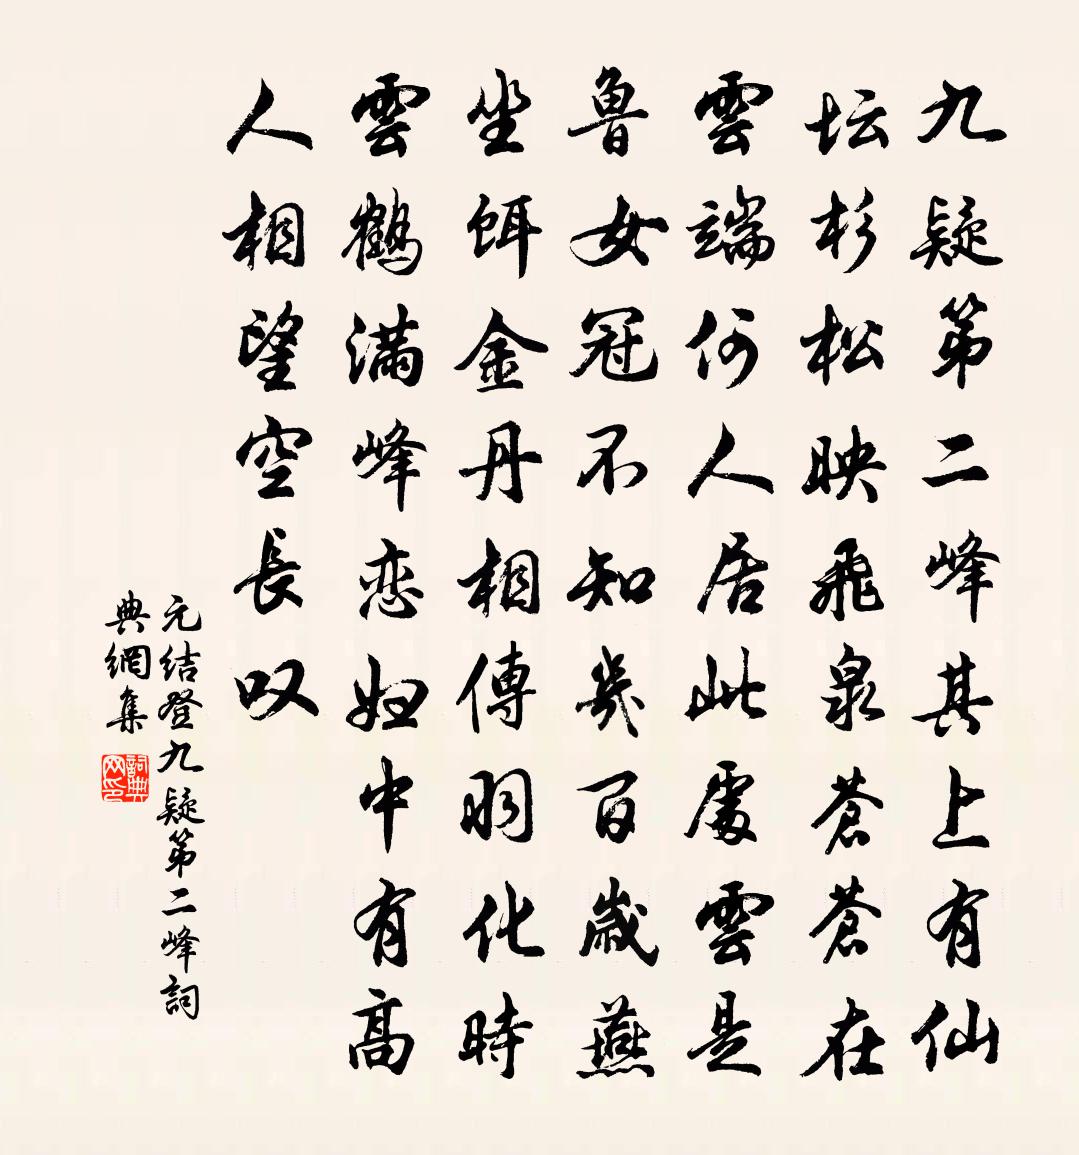 九疑第二峰其上有仙
坛杉松映飛泉蒼蒼在
雲端何人居此處雲是
魯女冠不知幾百歲燕
坐餌金丹相傳羽化時
雲鶴滿峰恋妇中有高
人相望空長叹
元結登九疑第二峰詞
典網集
詞典
网印